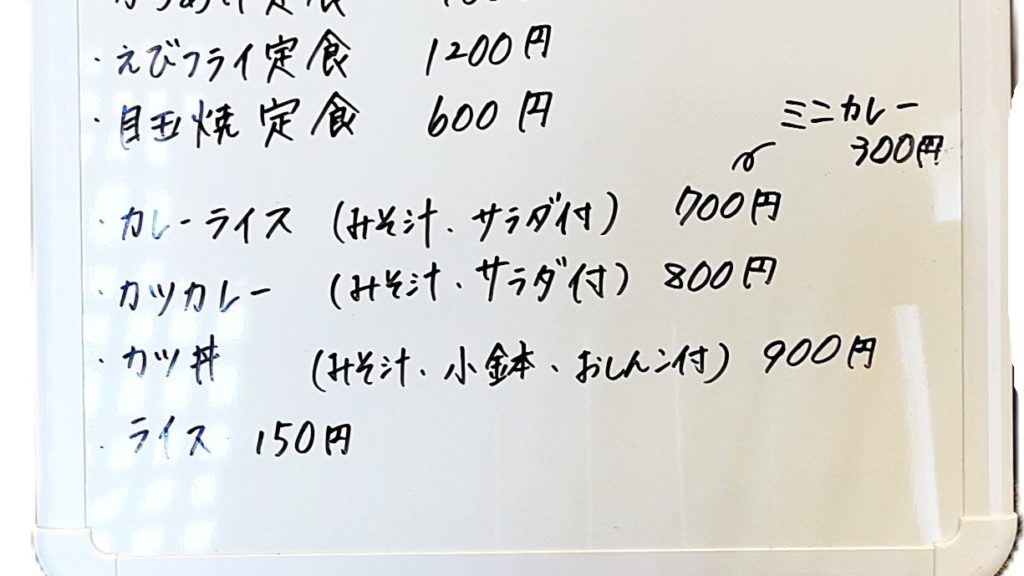 ・えびフライ定食 1200円
・目玉焼定食 600円
ミニカレー
300円
・カレーライス (みそ汁、サラダ付) 700円
・カツカレー (みそ汁、サラダ付) 800円
・カツ丼 (みそ汁、小鉢、おしんこ付) 900円
・ライス 150円